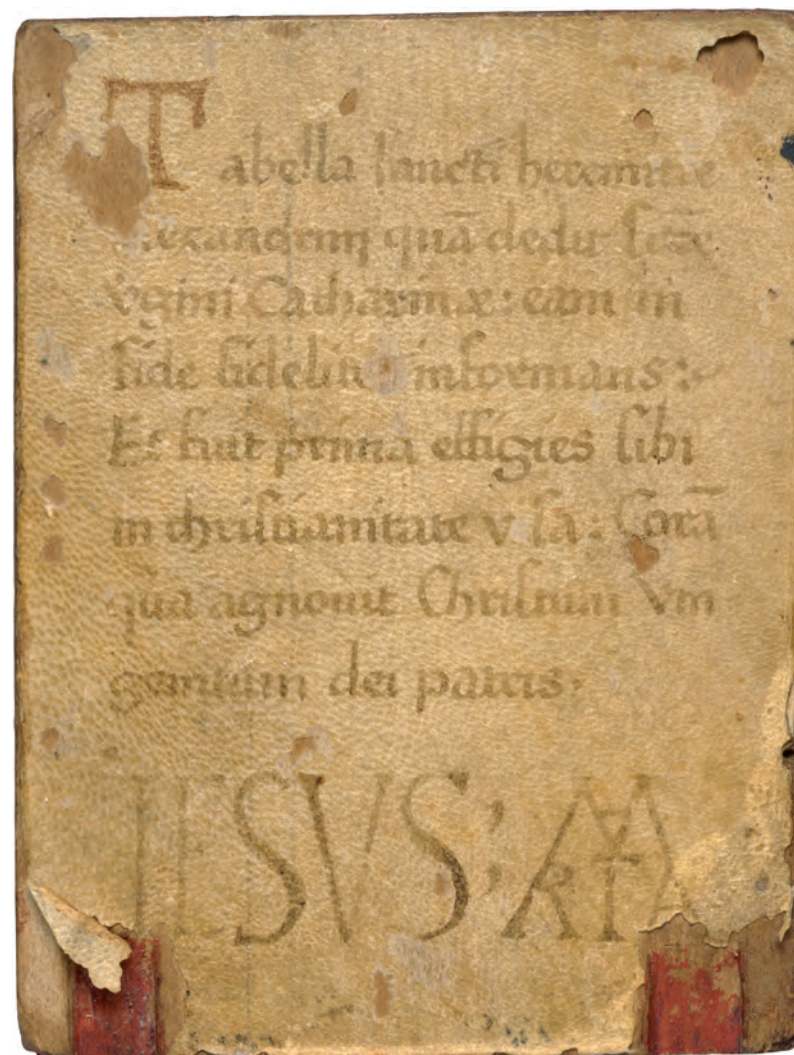 Tabella sancti heremitae
lexandrini quā dedit sctē
vgini Catharinæ: eam in
fide fideliter informans:
Et fuit prima effigies sibi
in christianitate v sa: Corā
qua agnouit Christum vni
genitum dei patris:
IESVS: MARIA